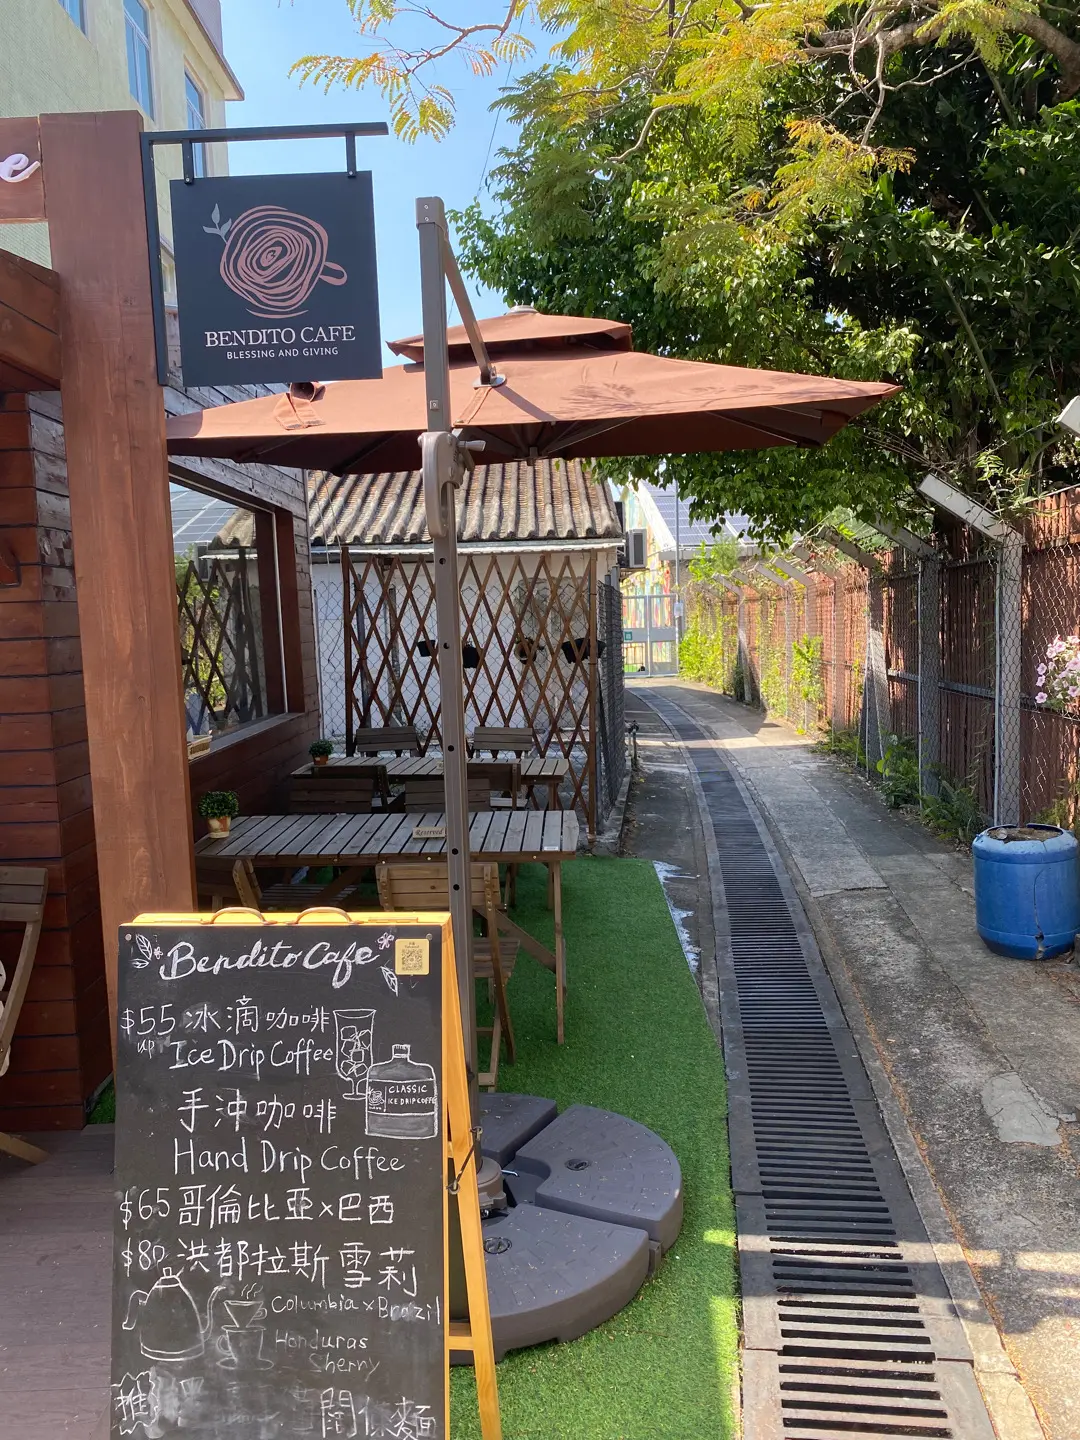 BENDITO CAFE
BLESSING AND GIVING
Reserved
Bendito Cafe
$55 冰滴咖啡
up Ice Drip Coffee
CLASSIC
ICE DRIP COFFEE
手沖咖啡
Hand Drip Coffee
$65 哥倫比亞x巴西
$80 洪都拉斯雪莉
Columbia x Brazil
Honduras
Sherry
推